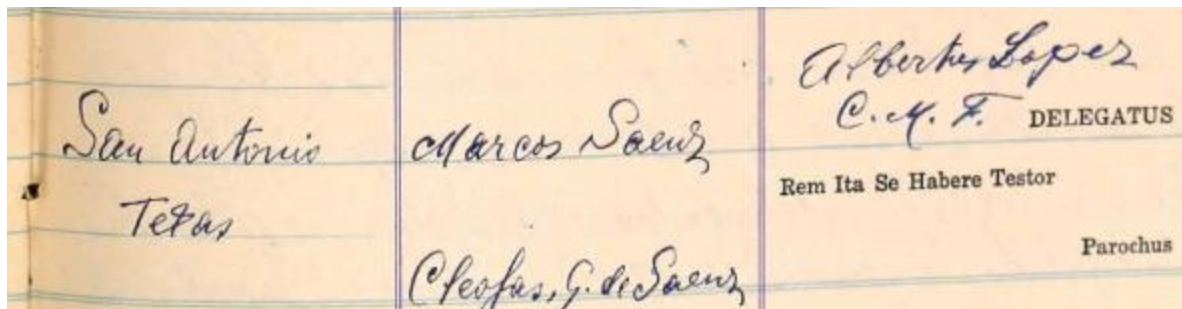 San Antonio
Texas
Marcos Saenz
Cleofas, G. de Saenz
Albertus Lopez
C. M. F. DELEGATUS
Rem Ita Se Habere Testor
Parochus